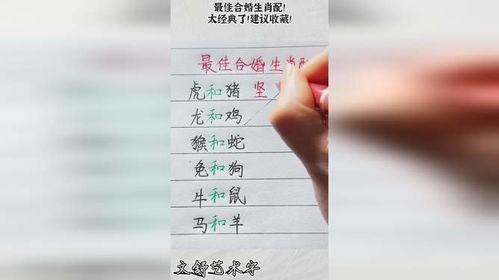 最佳合婚生肖配!
太经典了!建议收藏!
最佳合婚生肖配
虎和猪 坚
龙和鸡
猴和蛇
兔和狗
牛和鼠
马和羊
文舒艺术字